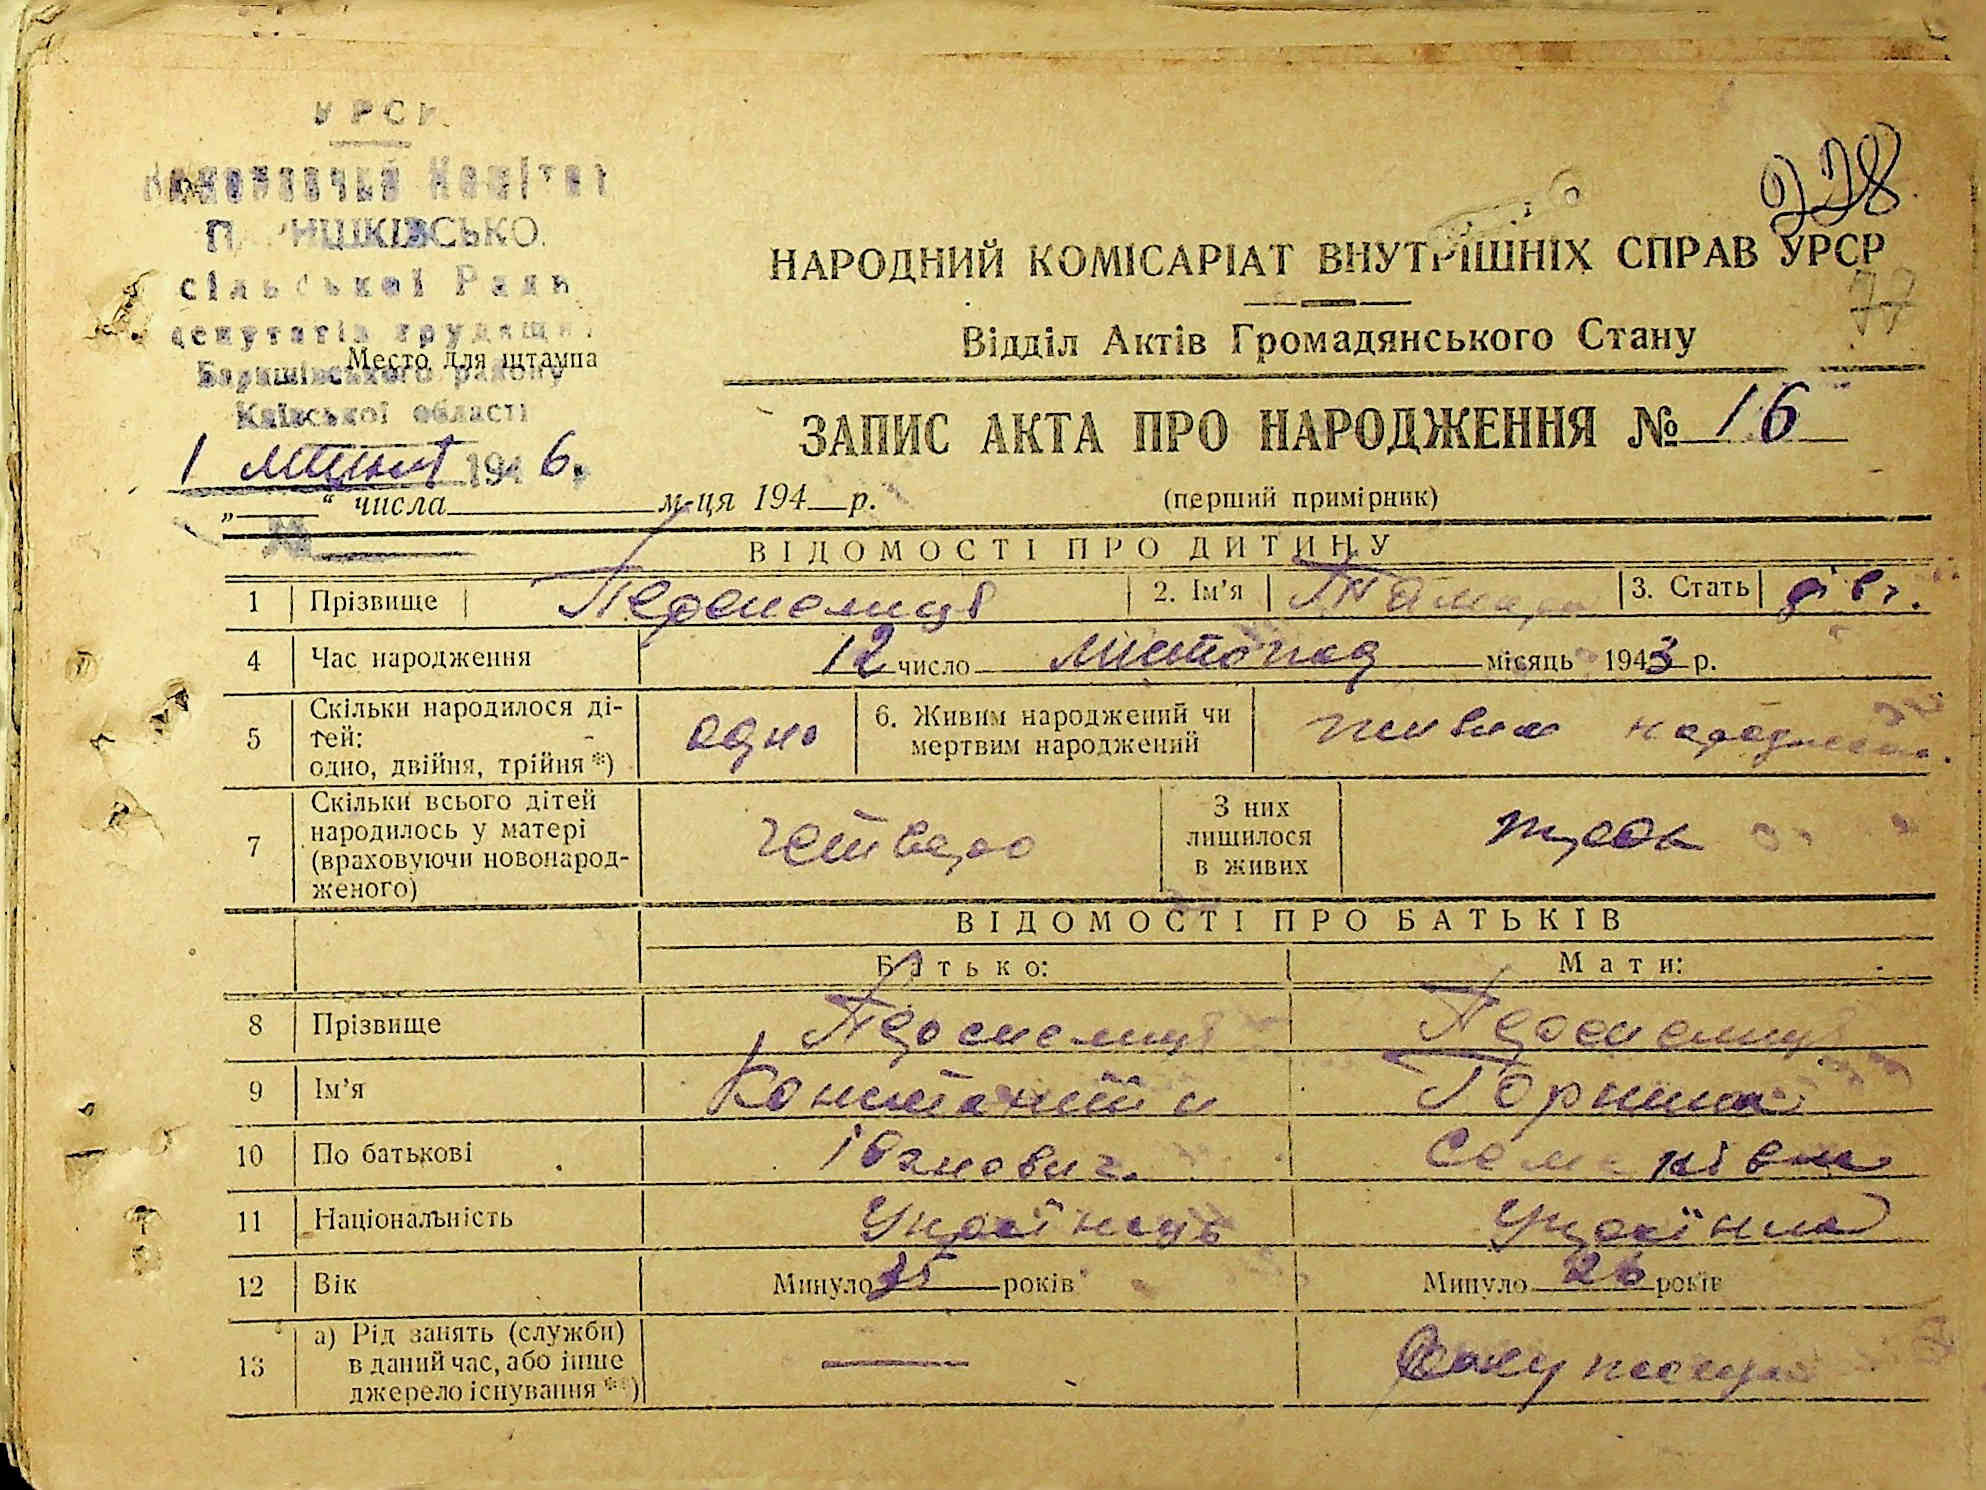 УРСР
Виконавчий Комітет
сільської Ради
депутатів трудящих
Баришівського району
Київської області
Место для штампа
1 липня 1946.
„ “ числа м-ця 194 р.
№
228
77
НАРОДНИЙ КОМІСАРІАТ ВНУТРІШНІХ СПРАВ УРСР
Відділ Актів Громадянського Стану
ЗАПИС АКТА ПРО НАРОДЖЕННЯ № 16
(перший примірник)
ВІДОМОСТІ ПРО ДИТИНУ
1 Прізвище 2. Ім’я Тамара 3. Стать дівч.
4 Час народження 12 число листопад місяць 1943 р.
5 Скільки народилося ді-
тей:
одно, двійня, трійня *) одно
6. Живим народжений чи
мертвим народжений живим народжено
7 Скільки всього дітей
народилось у матері
(враховуючи новонарод-
женого) четверо
З них
лишилося
в живих троє
ВІДОМОСТІ ПРО БАТЬКІВ
Батько: Мати:
8 Прізвище
9 Ім’я Константин
10 По батькові Іванович. Семенівна
11 Національність Українець Українка
12 Вік Минуло 35 років Минуло 26 років
13 а) Рід занять (служби)
в даний час, або інше
джерело існування **) —